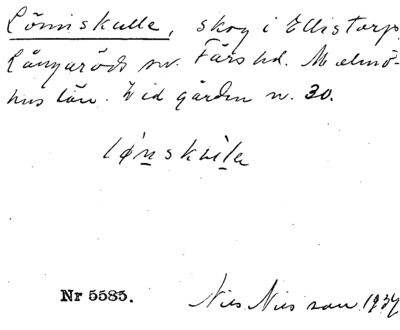 Lönnskulle, skog i Ellistorp,
Långaröds sn. Färs hd. Malmö-
hus län. Vid gården nr. 30.
løn̲skul̲a
Nr 5585.
Nils Nilsson 1934